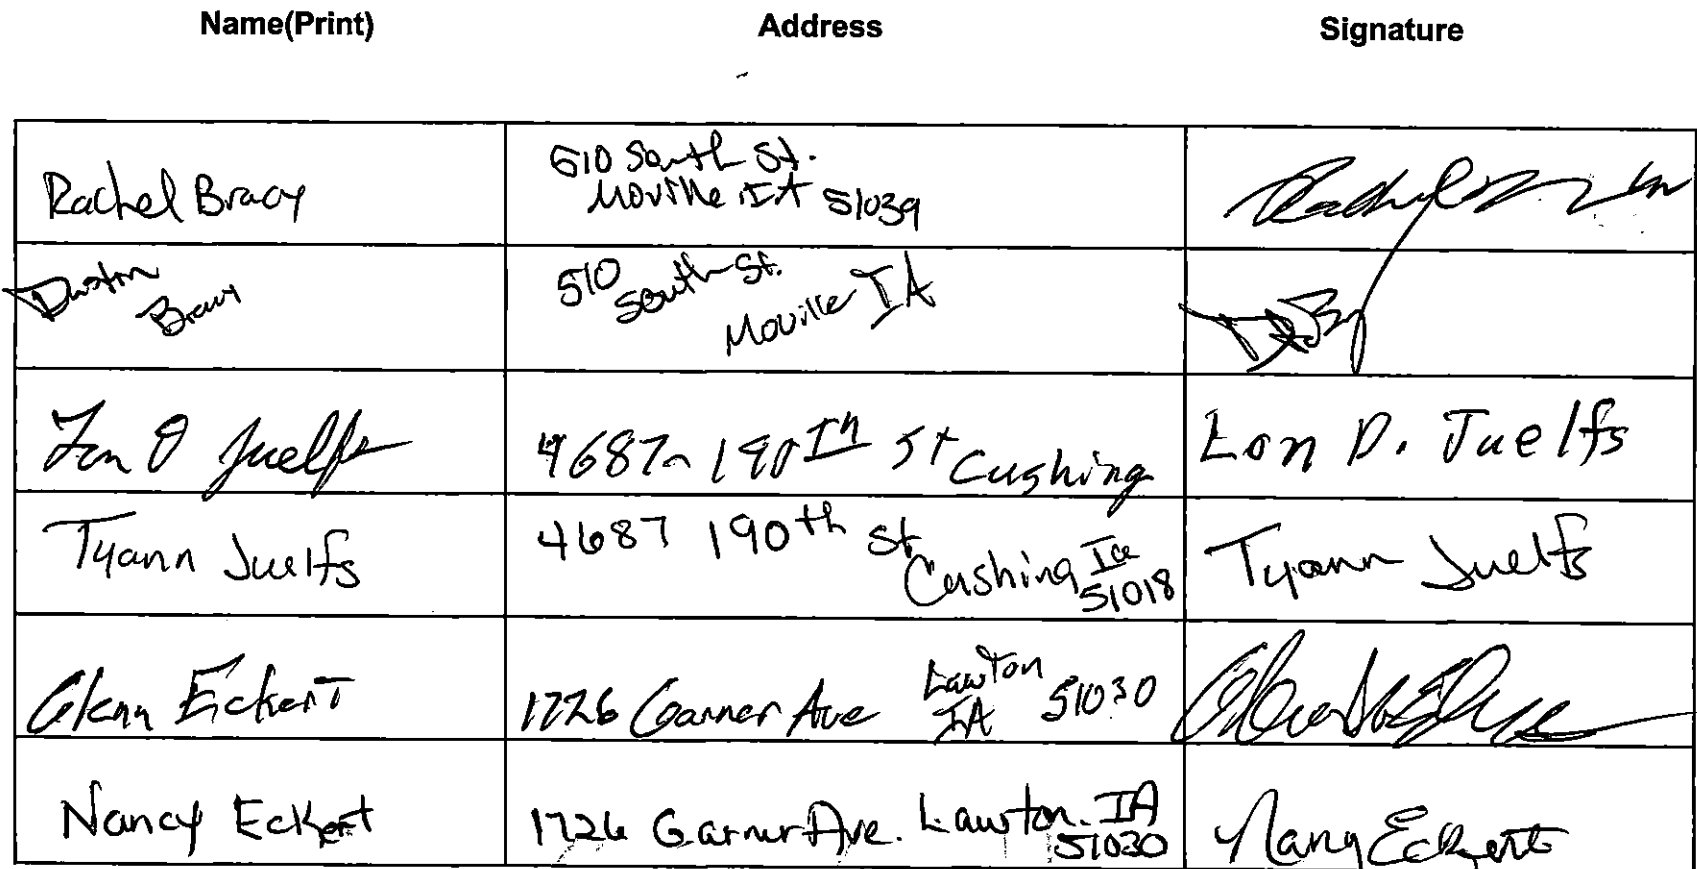 Name(Print) Address Signature
Rachel Bracy 510 South St.
Moville IA 51039
Dustin Bracy 510 South St. Moville IA
Lon D Juelfs 4687 190th St Cushing Lon D. Juelfs
Tyann Juelfs 4687 190th St Cushing Ia 51018 Tyann Juelfs
Glenn Eckert 1726 Garner Ave Lawton IA 51030
Nancy Eckert 1726 Garner Ave. Lawton. IA 51030 Nancy Eckert